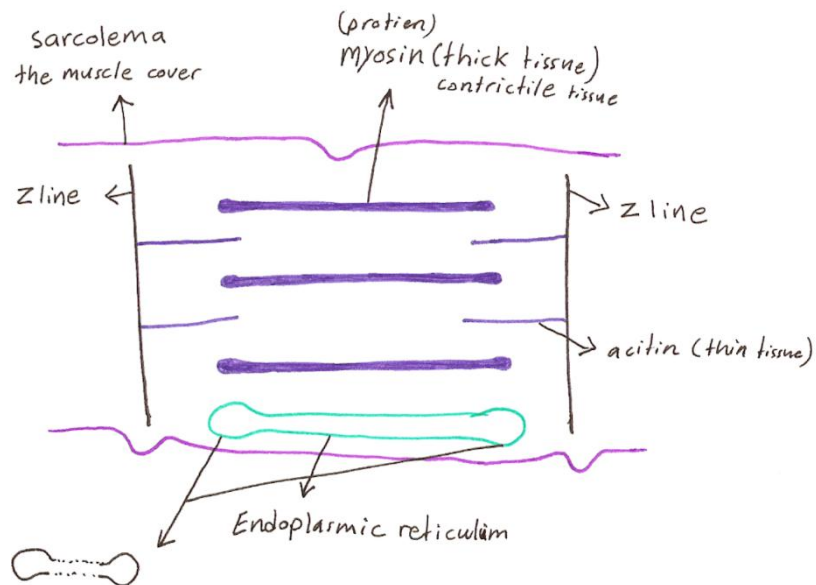 sarcolema
the muscle cover
(protien)
myosin (thick tissue)
contrictile tissue
Z line
Z line
acitin (thin tissue)
Endoplasmic reticulum